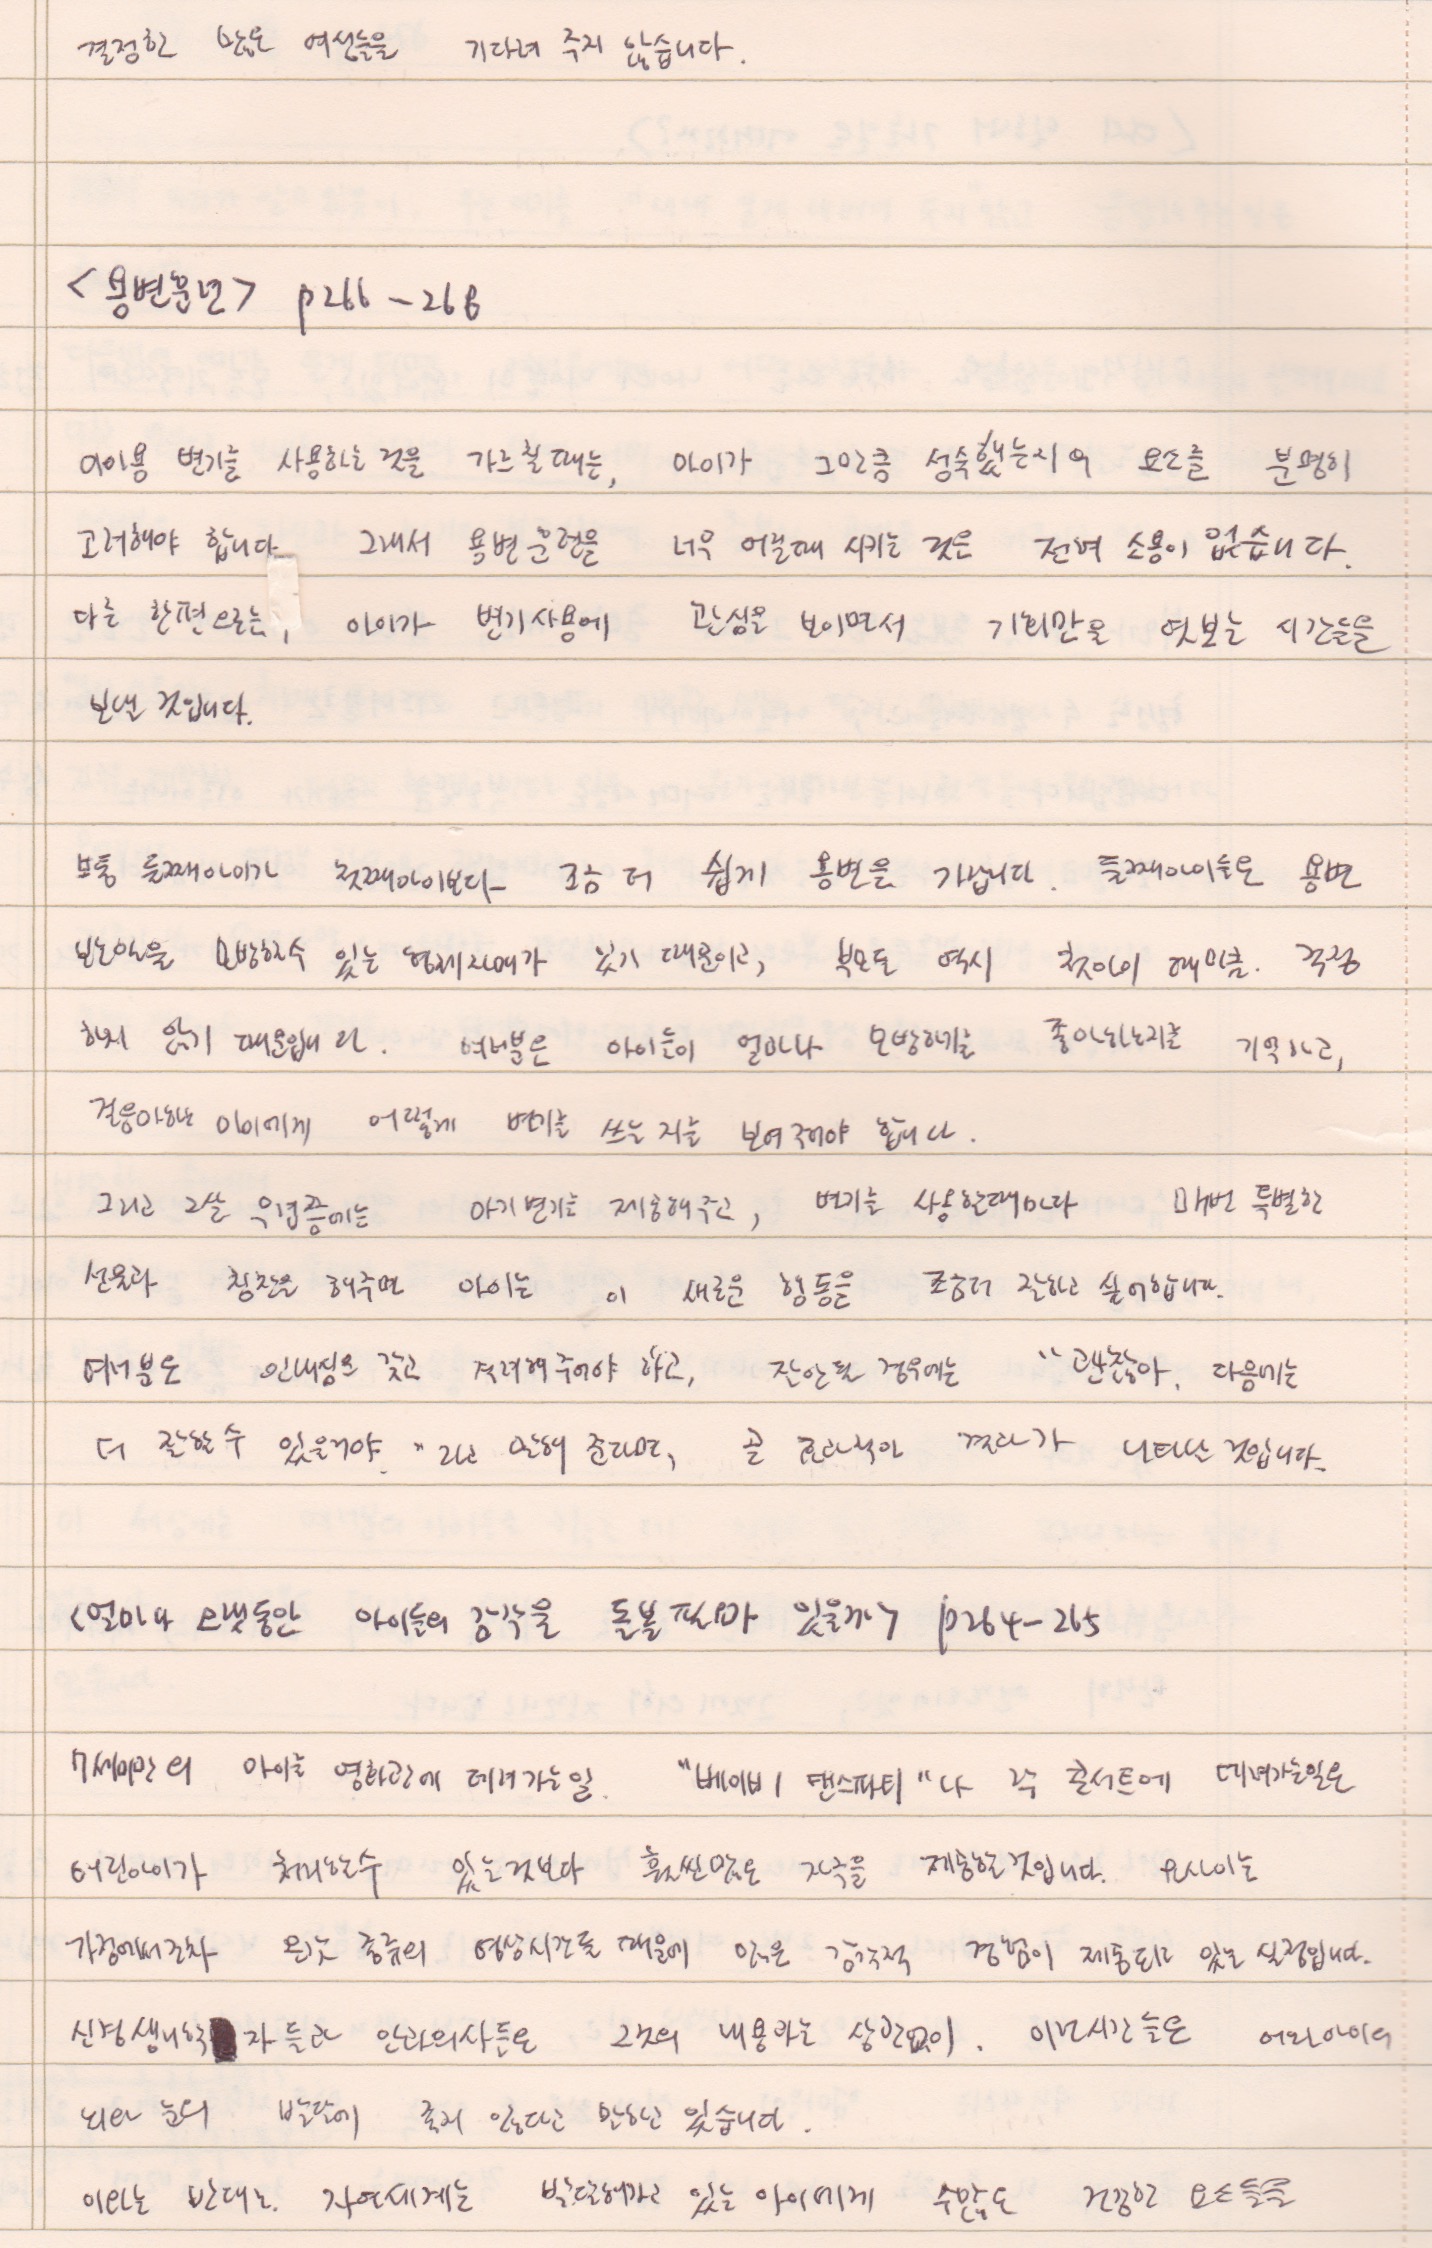 결정한 많은 여선들을 기다려 주지 않습니다.
<용변훈련> p266-268
아이용 변기를 사용하는 것을 가르칠때는, 아이가 그만큼 성숙했는지의 요소를 분명히
고려해야 합니다. 그래서 용변훈련을 너무 어릴때 시키는 것은 전혀 소용이 없습니다.
다른 한편으로는, 아이가 변기사용에 관심을 보이면서 기회만을 엿보는 시간들을
보낼 것입니다.
보통 둘째아이가 첫째아이보다 조금 더 쉽게 용변을 가립니다. 둘째아이들은 용변
보는일을 모방할수 있는 형제자매가 있기 때문이고, 부모도 역시 첫아이 때만큼 걱정
하지 않기 때문입니다. 여러분은 아이들이 얼마나 모방하기를 좋아하는지를 기억하고,
걸음마하는 아이에게 어떻게 변기를 쓰는지를 보여주어야 합니다.
그리고 2살 무렵쯤에는 아기변기를 제공해주고, 변기를 사용할때마다 매번 특별한
선물과 칭찬을 해주면 아이는 이 새로운 행동을 조금더 잘하고 싶어합니다.
여러분은 인내심을 갖고 격려해주어야 하고, 잘안될 경우에는 "괜찮아. 다음에는
더 잘할수 있을거야."라고 말해 준다면, 곧 효과적인 결과가 나타날 것입니다.
<얼마나 오랫동안 아이들의 감각을 돌볼 필요가 있을까> p264-265
7세미만의 아이를 영화관에 데려가는일. "베이비 댄스파티"나 락 콘서트에 데려가는일은
어린아이가 처리할수 있는것보다 훨씬많은 자극을 제공할것입니다. 요사이는
가정에서조차 온갖 종류의 영상시간들 때문에 많은 감각적 경험이 제공되고 있는 실정입니다.
신경생리학자들과 안과의사들은 그것의 내용과는 상관없이. 이런시간들은 어린아이의
뇌와 눈의 발달에 좋지 않다고 말하고 있습니다.
이와는 반대로. 자연세계는 발달해가고 있는 아이에게 수많은 건강한 요소들을